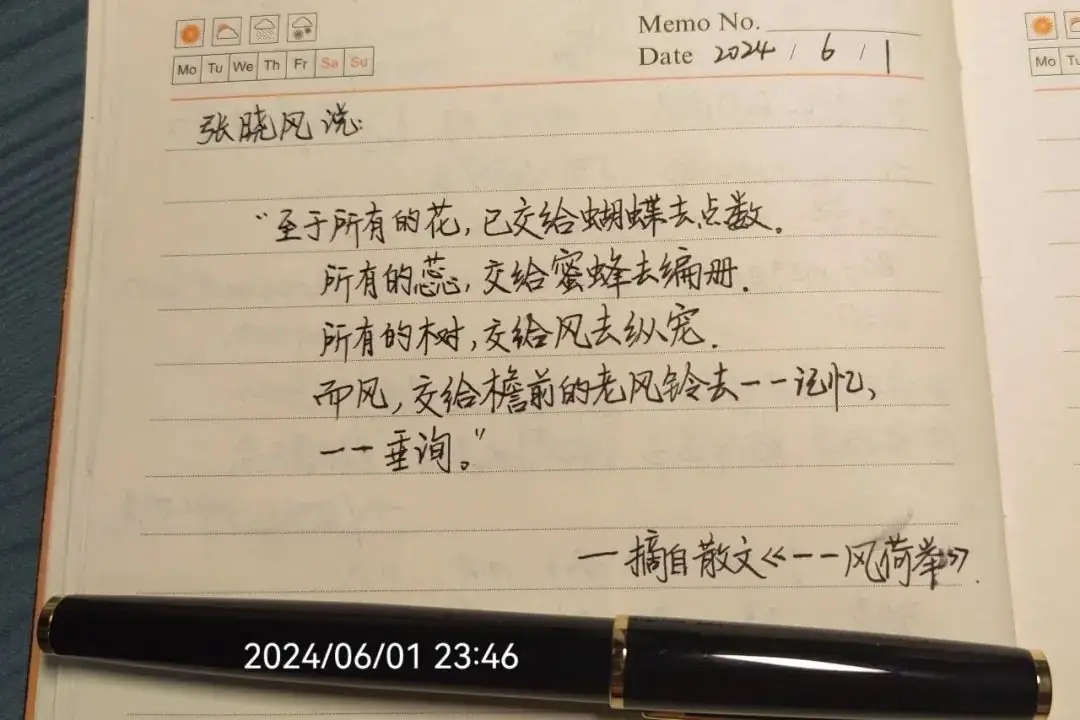 Memo No.
Mo Tu We Th Fr Sa Su
Date 2024 / 6 / 1
Mo Tu
张晓风说:
“至于所有的花,已交给蝴蝶去点数.
所有的蕊,交给蜜蜂去编册.
所有的树,交给风去纵宠.
而风,交给檐前的老风铃去一一记忆、
一一垂询。”
一摘自散文《一一风荷举》.
2024/06/01 23:46